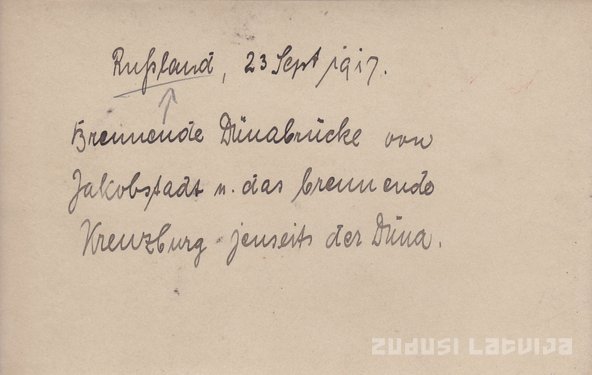 Rußland, 23 Sept 1917.
Brennende Dünabrücke von
Jakobstadt u. das brennende
Kreuzburg jenseits der Düna.
zudusi Latvija